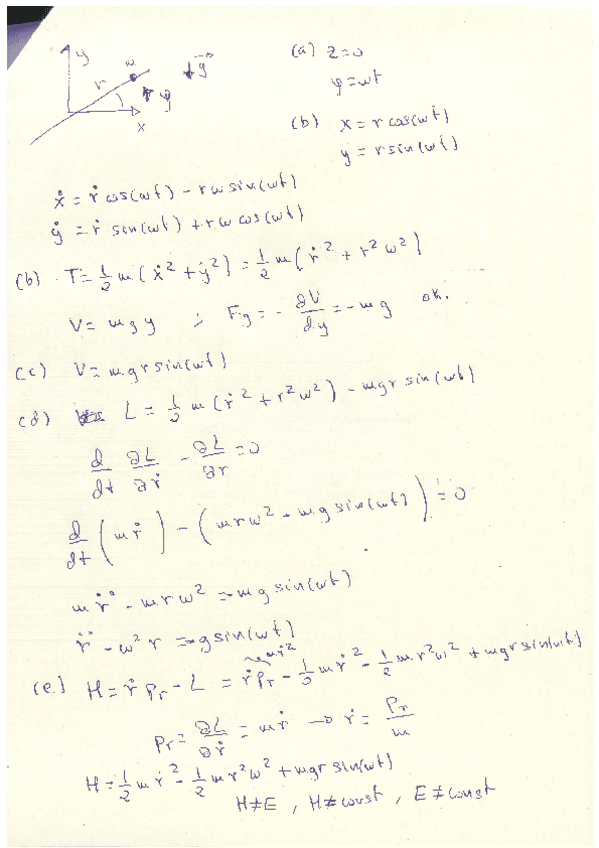 y
m
g
r
φ
x
(a) z=0
φ=ωt
(b) x = r cos(ωt)
y = r sin(ωt)
ẋ = ṙ cos(ωt) - rω sin(ωt)
ẏ = ṙ sin(ωt) + rω cos(ωt)
(b) T = 1/2 m (ẋ² + ẏ²) = 1/2 m (ṙ² + r²ω²)
V = mgy ; Fg = - ∂V/∂y = -mg ok.
(c) V = mgr sin(ωt)
(d) L = 1/2 m (ṙ² + r²ω²) - mgr sin(ωt)
d/dt ∂L/∂ṙ - ∂L/∂r = 0
d/dt (mṙ) - (mrω² - mg sin(ωt)) = 0
m r̈ - mrω² = -mg sin(ωt)
r̈ - ω² r = -g sin(ωt)
mṙ²
(e) H = ṙ Pr - L = ṙPr - 1/2 mṙ² - 1/2 m r²ω² + mgr sin(ωt)
Pr = ∂L/∂ṙ = mṙ → ṙ = Pr/m
H = 1/2 mṙ² - 1/2 mr²ω² + mgr sin(ωt)
H≠E , H≠const , E≠const